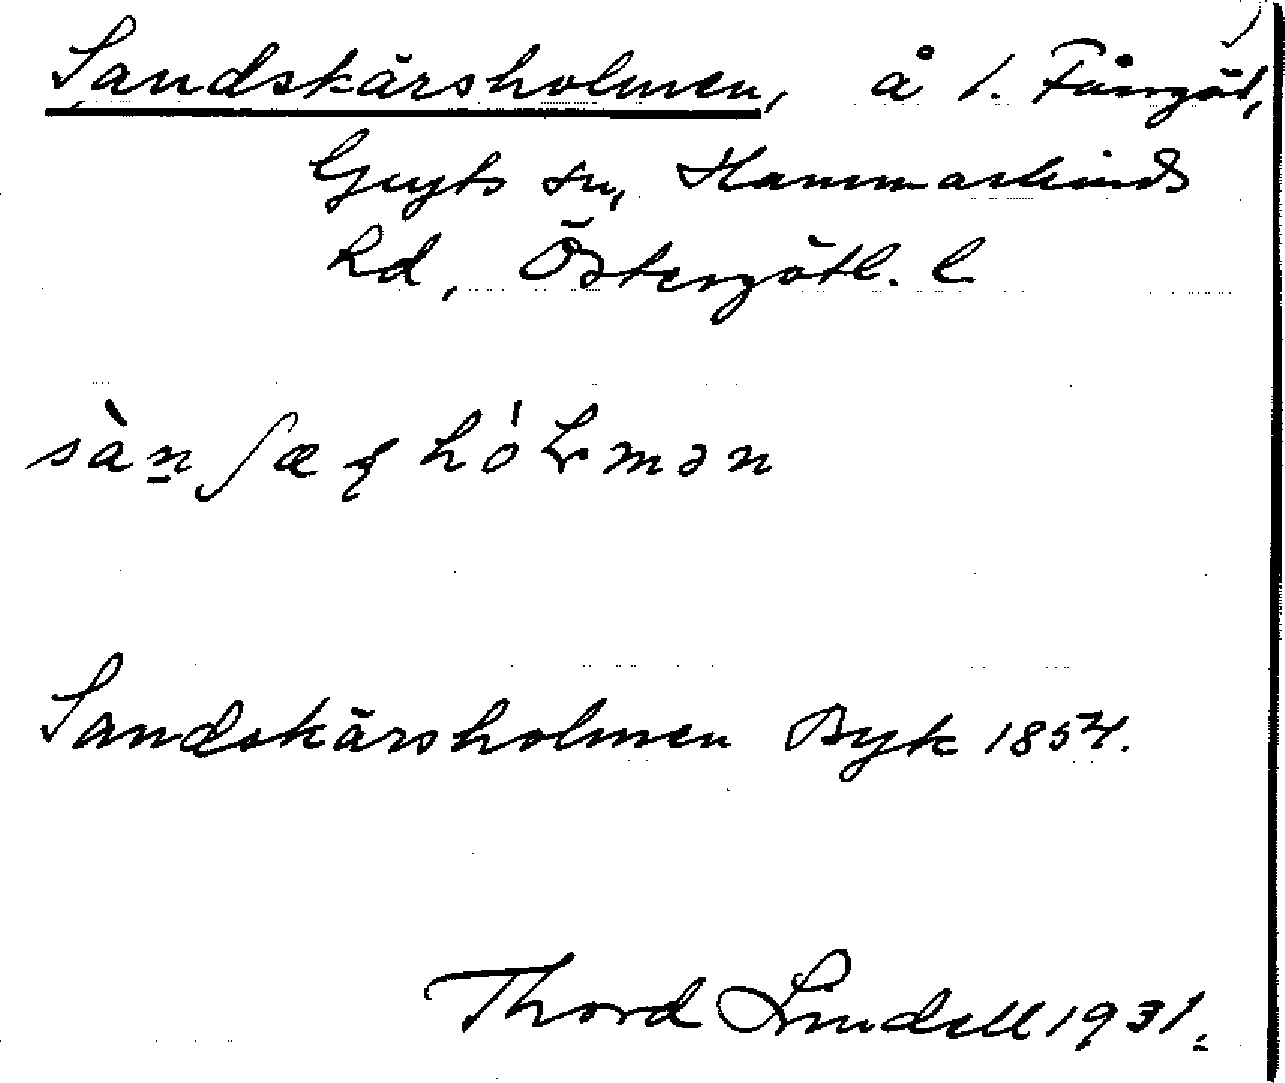 Sandskärsholmen, å l. Fångöl,
Gryts sn, Hammarkinds
hd, Östergötl. l
Sandskärsholmen Byk 1854.
Thord Lindell 1931.